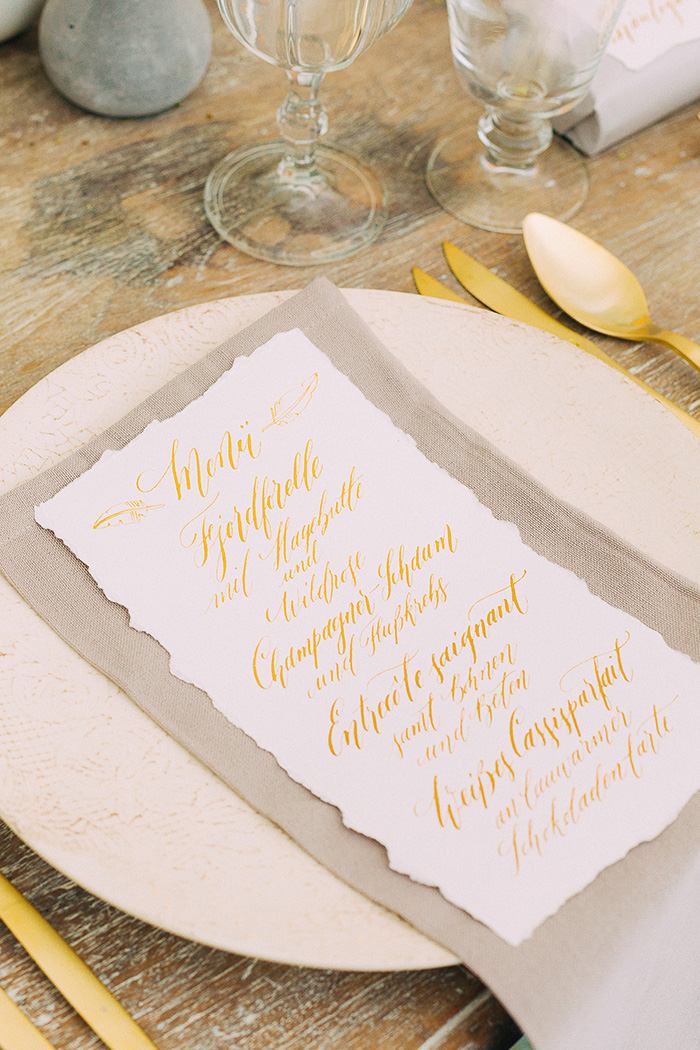 Menü
Fjordforelle
mit Hagebutte
und
Wildrose
Champagner-Schaum
und Flußkrebs
Entrecôte saignant
samt Bohnen
und Beten
Weißes Cassisparfait
an lauwarmer
Schokoladentarte